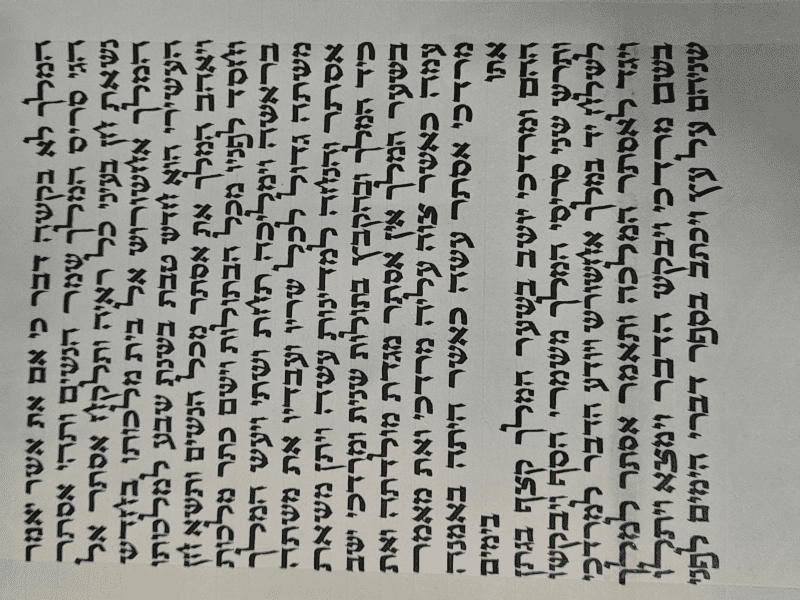 המלך לא בקשה דבר כי אם את אשר יאמר
הגי סריס המלך שמר הנשים ותהי אסתר
נשאת חן בעיני כל ראיה ותלקח אסתר אל
המלך אחשורוש אל בית מלכותו בחדש
העשירי הוא חדש טבת בשנת שבע למלכותו
ויאהב המלך את אסתר מכל הנשים ותשא חן
וחסד לפניו מכל הבתולות וישם כתר מלכות
בראשה וימליכה תחת ושתי ויעש המלך
משתה גדול לכל שריו ועבדיו את משתה
אסתר והנחה למדינות עשה ויתן משאת
כיד המלך ובהקבץ בתולות שנית ומרדכי ישב
בשער המלך אין אסתר מגדת מולדתה ואת
עמה כאשר צוה עליה מרדכי ואת מאמר
מרדכי אסתר עשה כאשר היתה באמנה
אתו בימים
ההם ומרדכי יושב בשער המלך קצף בגתן
ותרש שני סריסי המלך משמרי הסף ויבקשו
לשלח יד במלך אחשורש ויודע הדבר למרדכי
ויגד לאסתר המלכה ותאמר אסתר למלך
בשם מרדכי ויבקש הדבר וימצא ויתלו
שניהם על עץ ויכתב בספר דברי הימים לפני